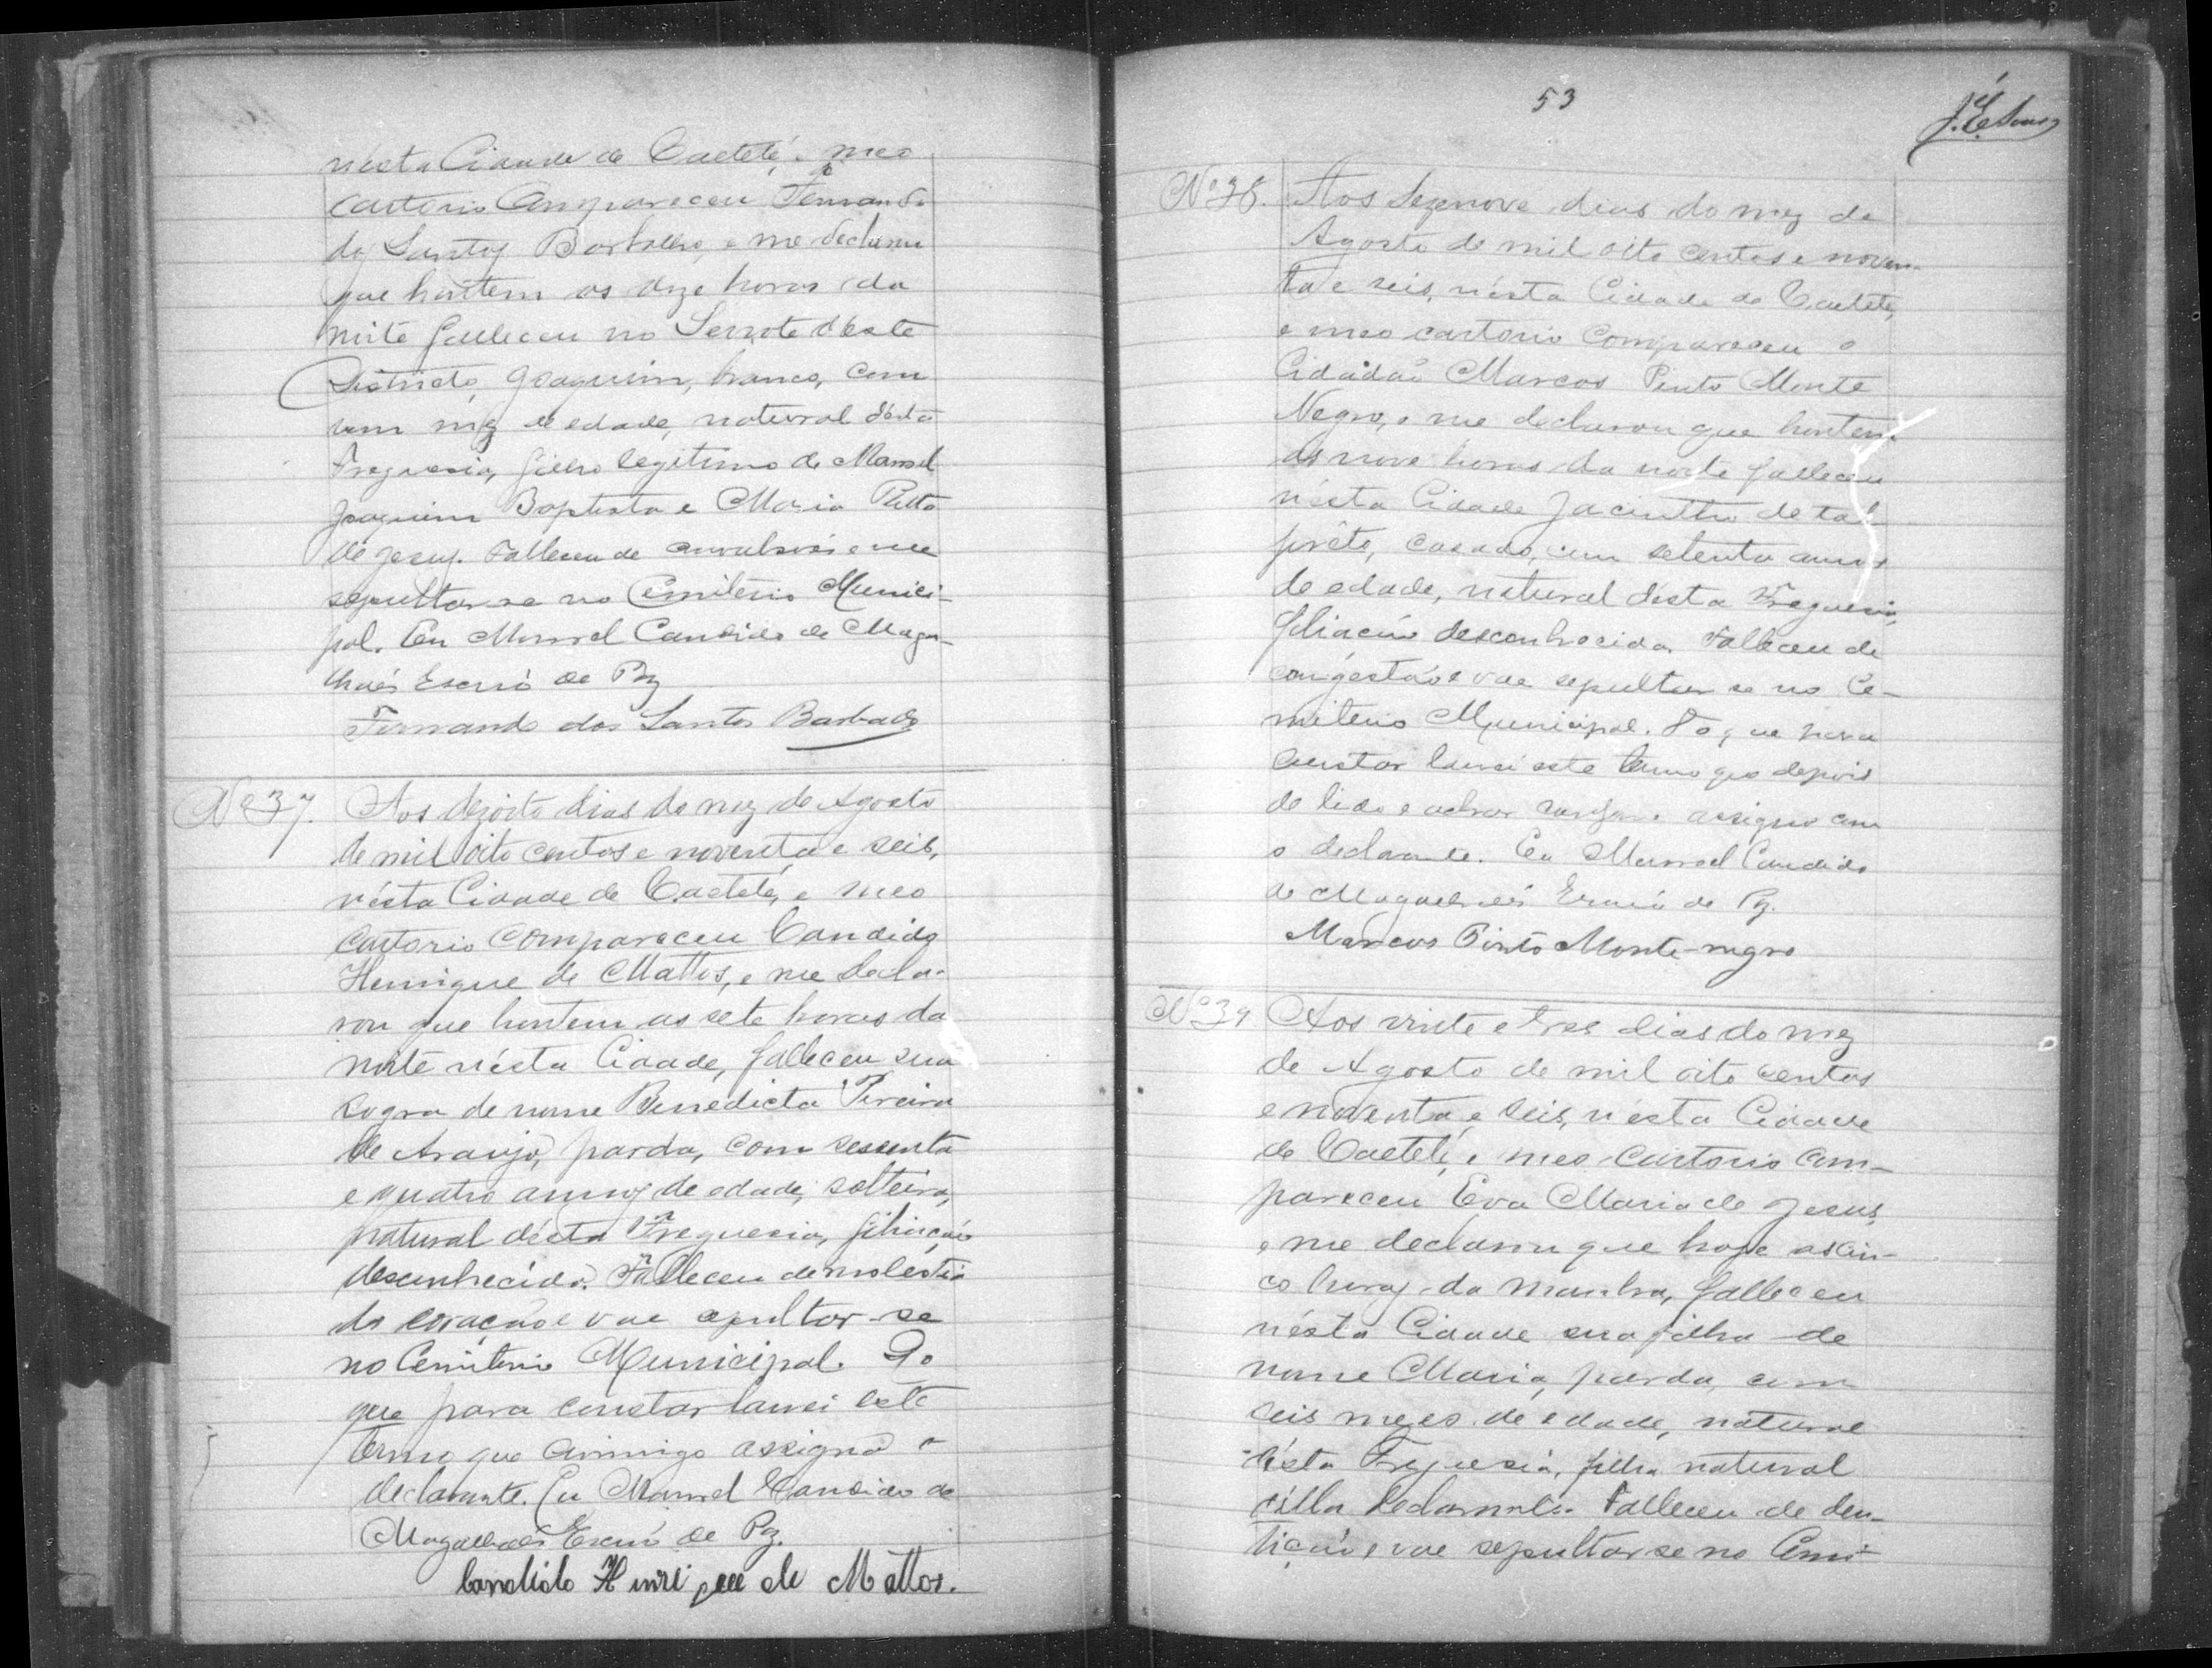 nésta Cidade de Caeteté, e meo
cartorio Compareceu Fernando
dos Santos Barbalho, e me declarou
que hontem as onze horas da
noite falleceu no Serrote d'éste
Districto, Joaquim, branco, com
um mez de edade, natural désta
Freguesia, filho legitimo de Manoel
Joaquim Baptista e Maria Ritta
de Jesus. Falleceu de convulsões e vae
sepultar se no Cemiterio Munici-
pal. Eu Manoel Candido de Maga-
lhaés Escrm. de Paz
Fernando dos Santos

No 37. Aos dezoito dias do mez de Agosto
de mil oito centos e noventa e seis,
nésta Cidade de Caeteté, e meo
Cartorio Compareceu Candido
Henrique de Mattos, e me decla-
rou que hontem as sete horas da
noite nésta Cidade, falleceu sua
sogra de nome Benedicta Pereira
de Araujo, parda, com sessenta
e quatro annos de edade, solteira,
natural désta Freguesia, filiação
desconhecida. Falleceu de molestia
do coração e vae sepultar-se
no Cemiterio Municipal. Do
que para constar lancei este
termo que commigo assigna o
declarante. Eu Manoel Candido de
Magalhaés Escrm. de Paz.
Candido Henrique de Mattos.

53

No 38. Aos dezenove dias do mez de
Agosto de mil oito centos e noven-
ta e seis, nésta Cidade de Caeteté,
e meo cartorio Compareceu o
Cidadaõ Marcos Pinto Monte
Negro, e me declarou que hontem
as nove horas da noite falleceu
nésta Cidade Jacintho de tal
prêto, casado, com setenta annos
de edade, natural désta Freguesia,
filiação desconhecida. Falleceu de
congestão e vae sepultar se no Ce-
miterio Municipal. Do que para
constar lancei este termo que depois
de lido e achar conforme assigna com
o declarante. Eu Manoel Candido
de Magalhaés Escrm. de Paz.
Marcos Pinto Monte-negro

No 39 Aos vinte e tres dias do mez
de Agosto de mil oito centos
e noventa e seis, nésta Cidade
de Caeteté, e meo Cartorio Com-
pareceu Eva Maria de Jesus,
e me declarou que hoje as cin-
co horas da manha, falleceu
nésta Cidade sua filha de
nome Maria, parda, com
seis mezes de edade, natural
désta Freguesia, filha natural
d'élla declarante. Falleceu de den-
tição e vae sepultar se no Cemi-